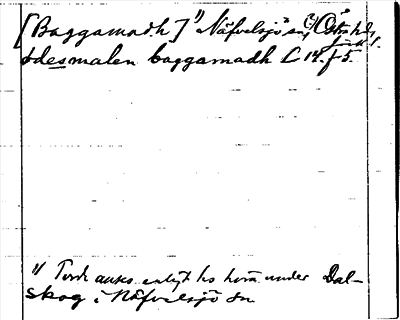 [Baggamadh] 1) Näfvelsjö sn, Östra hd,
ödesmalen baggamadh L 14. f 5.
1) Torde anses enligt hs höra under Dal-
skog i Näfvelsjö sn